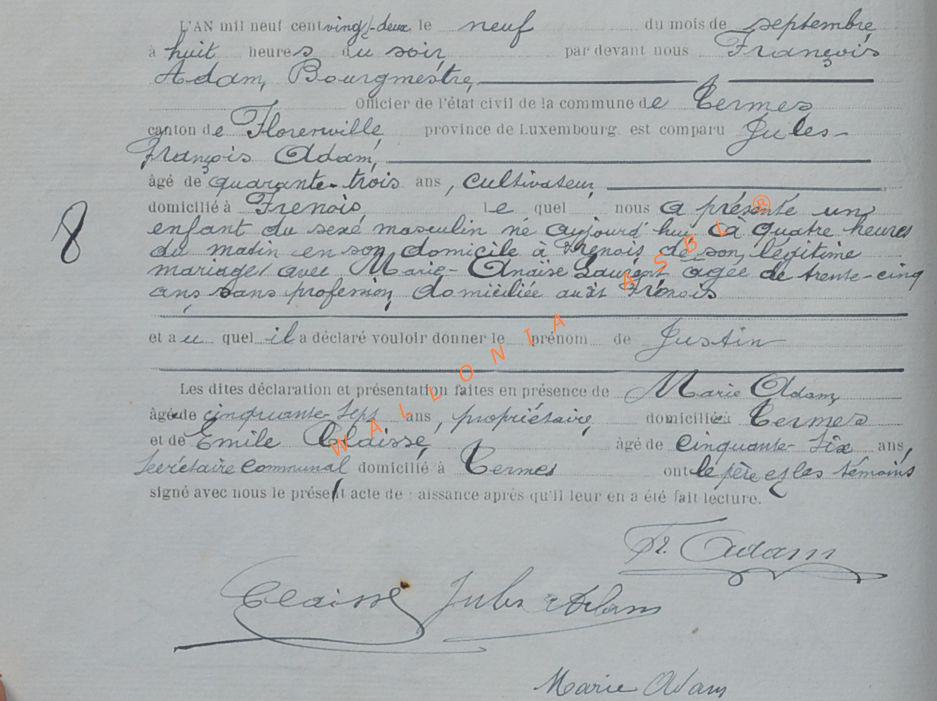 L'AN mil neuf cent vingt-deux le neuf du mois de septembre
à huit heures du soir par devant nous François
Adam, Bourgmestre,
Officier de l'état civil de la commune de Termes
canton de Florenville, province de Luxembourg est comparu Jules-
François Adam,
âgé de quarante-trois ans, cultivateur,
domicilié à Frenois, lequel nous a présenté un
8 enfant du sexe masculin né aujourd'hui à quatre heures
du matin en son domicile à Frenois de son légitime
mariage avec Marie-Anaïse Laurent agée de trente-cinq
ans sans profession, domiciliée aussi Frenois
et au quel il a déclaré vouloir donner le prénom de Justin
Les dites déclaration et présentation faites en présence de Marie Adam,
âgée de cinquante-sept ans, propriétaire, domiciliée à Termes
et de Emile Claisse, âgé de cinquante-six ans,
secrétaire communal domicilié à Termes ont le père et les témoins
signé avec nous le présent acte de naissance après qu'il leur en a été fait lecture.
Fr. Adam
Claisse Jules Adam
Marie Adam
WALLONIA ASBL ®